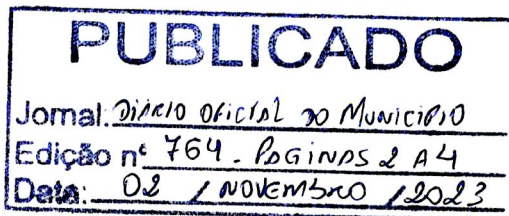 PUBLICADO
Jornal: DIÁRIO OFICIAL DO MUNICIPIO
Edição nº 764 - PAGINAS 2 A 4
Data: 02 / NOVEMBRO / 2023